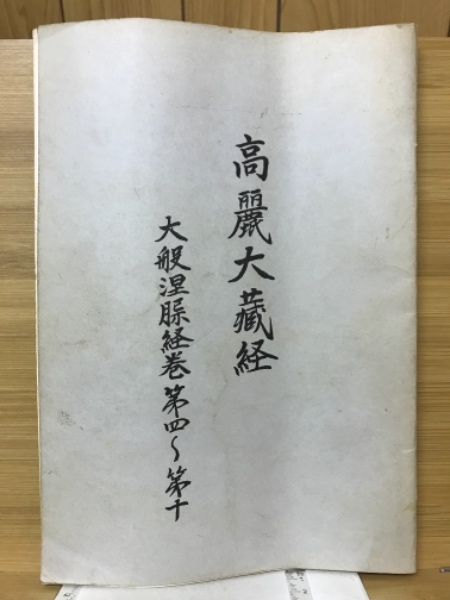 高麗大藏経
大般涅脲経巻第四〜第十